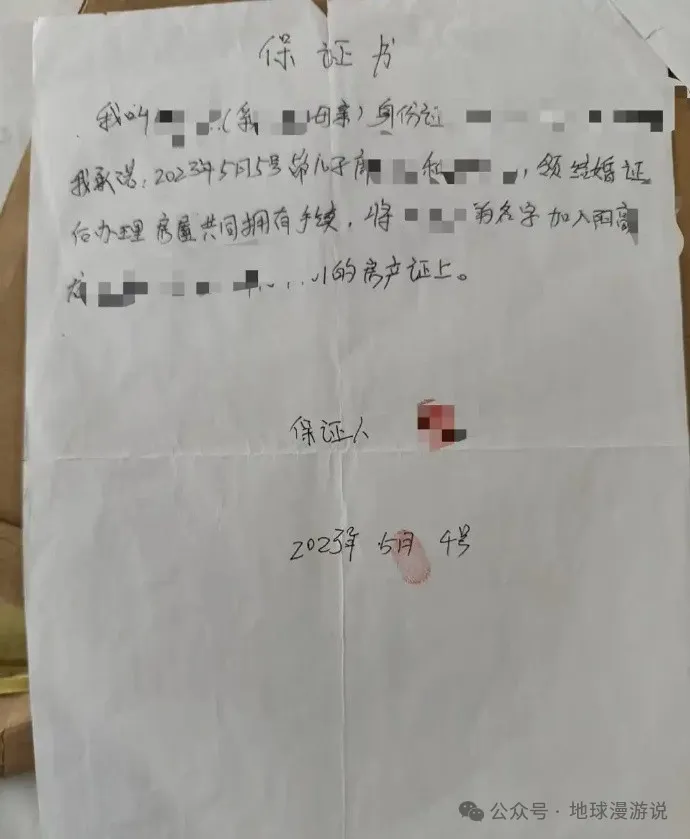 保证书
我叫（系母亲）身份证
我承诺：2023年5月5号第儿子席和，领结婚证
后办理房屋共同拥有手续，将的名字加入阳高
的房产证上。
保证人
2023年5月4号
公众号·地球漫游说